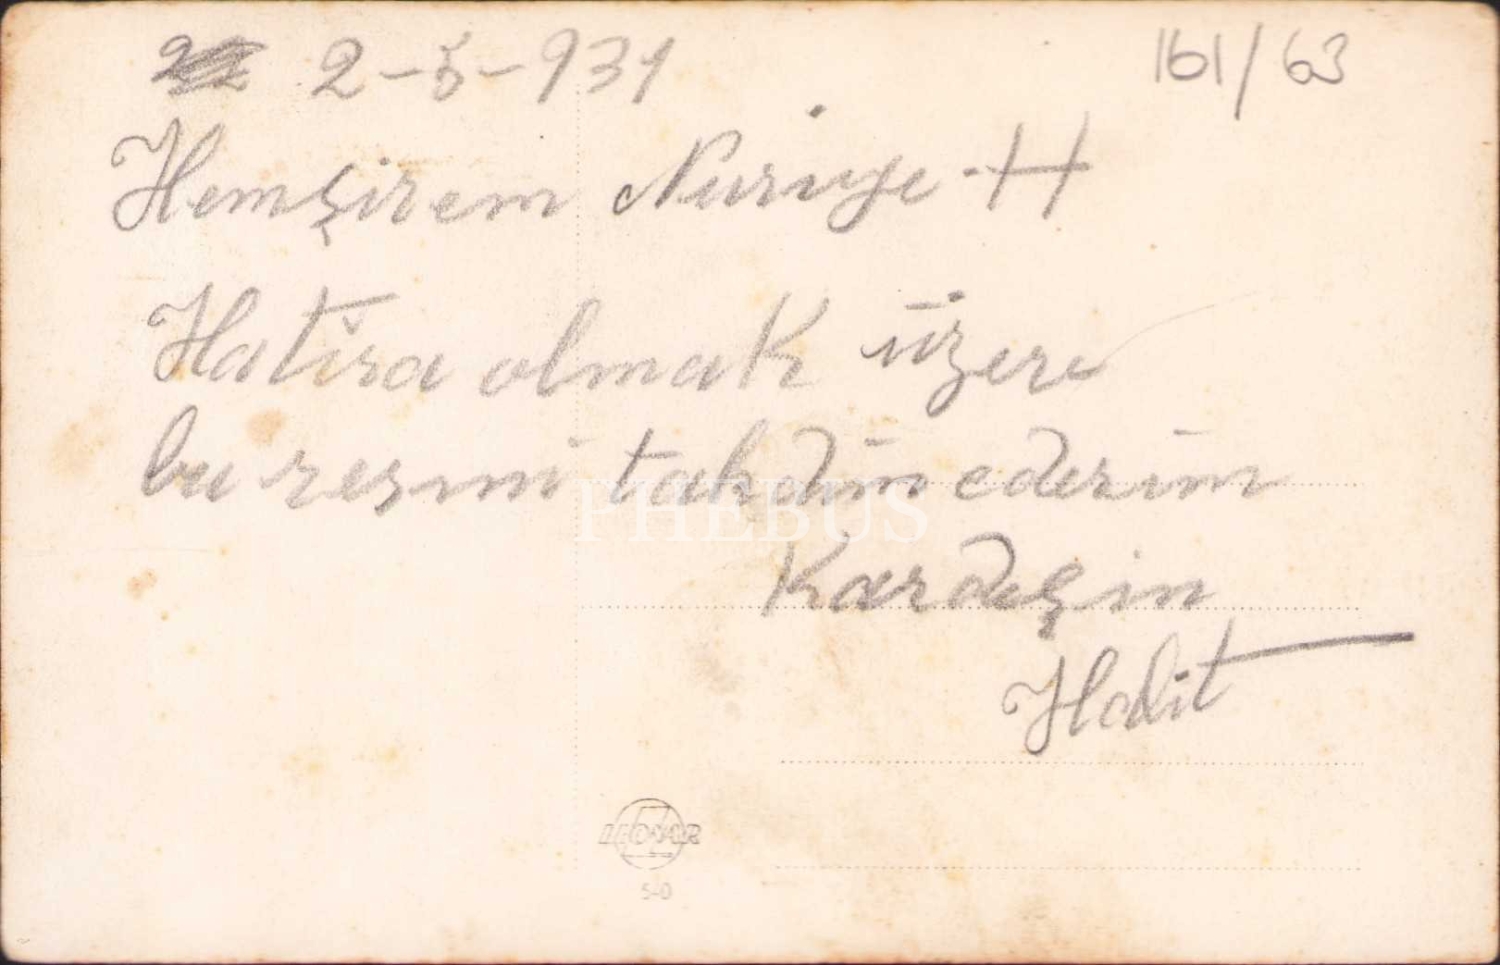 2-5-931
161/63
Hemşirem Nuriye-H
Hatira olmak üzere
bu resmi takdim ederim
Kardeşin
Halit
PHEBUS
LEONAR